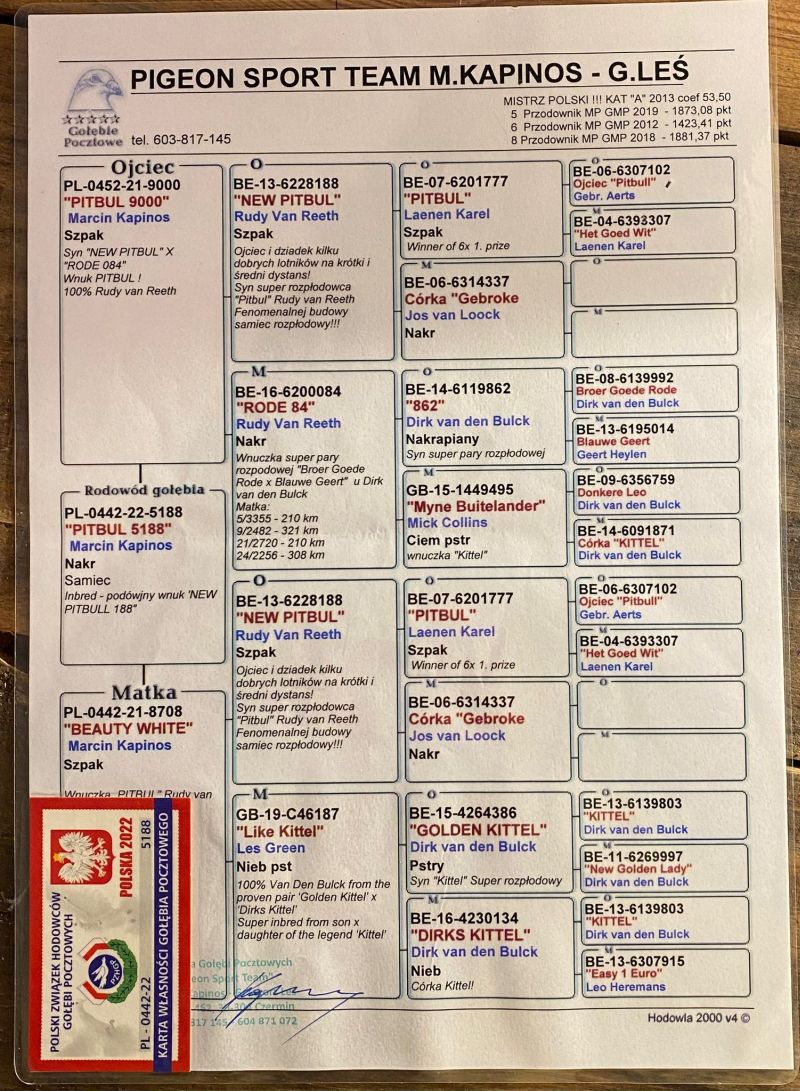 PIGEON SPORT TEAM M.KAPINOS - G.LEŚ
MISTRZ POLSKI !!! KAT "A" 2013 coef 53,50
5 Przodownik MP GMP 2019 - 1873,08 pkt
6 Przodownik MP GMP 2012 - 1423,41 pkt
8 Przodownik MP GMP 2018 - 1881,37 pkt
Gołębie
Pocztowe
tel. 603-817-145
Ojciec
PL-0452-21-9000
"PITBUL 9000"
Marcin Kapinos
Szpak
Syn "NEW PITBUL" X
"RODE 084"
Wnuk PITBUL !
100% Rudy van Reeth
Rodowód gołębia
PL-0442-22-5188
"PITBUL 5188"
Marcin Kapinos
Nakr
Samiec
Inbred - podówjny wnuk 'NEW
PITBULL 188"
Matka
PL-0442-21-8708
"BEAUTY WHITE"
Marcin Kapinos
Szpak
Wnuczka PITBUL" Rudy van
O
BE-13-6228188
"NEW PITBUL"
Rudy Van Reeth
Szpak
Ojciec i dziadek kilku
dobrych lotników na krótki i
średni dystans!
Syn super rozpłodowca
"Pitbul" Rudy van Reeth
Fenomenalnej budowy
samiec rozpłodowy!!!
M
BE-16-6200084
"RODE 84"
Rudy Van Reeth
Nakr
Wnuczka super pary
rozpodowej "Broer Goede
Rode x Blauwe Geert" u Dirk
van den Bulck
Matka:
5/3355 - 210 km
9/2482 - 321 km
21/2720 - 210 km
24/2256 - 308 km
O
BE-13-6228188
"NEW PITBUL"
Rudy Van Reeth
Szpak
Ojciec i dziadek kilku
dobrych lotników na krótki i
średni dystans!
Syn super rozpłodowca
"Pitbul" Rudy van Reeth
Fenomenalnej budowy
samiec rozpłodowy!!!
M
GB-19-C46187
"Like Kittel"
Les Green
Nieb pst
100% Van Den Bulck from the
proven pair 'Golden Kittel' x
'Dirks Kittel'
Super inbred from son x
daughter of the legend 'Kittel'
O
BE-07-6201777
"PITBUL"
Laenen Karel
Szpak
Winner of 6x 1. prize
M
BE-06-6314337
Córka "Gebroke
Jos van Loock
Nakr
O
BE-14-6119862
"862"
Dirk van den Bulck
Nakrapiany
Syn super pary rozpłodowej
M
GB-15-1449495
"Myne Buitelander"
Mick Collins
Ciem pstr
wnuczka "Kittel"
O
BE-07-6201777
"PITBUL"
Laenen Karel
Szpak
Winner of 6x 1. prize
M
BE-06-6314337
Córka "Gebroke
Jos van Loock
Nakr
O
BE-15-4264386
"GOLDEN KITTEL"
Dirk van den Bulck
Pstry
Syn "Kittel" Super rozpłodowy
M
BE-16-4230134
"DIRKS KITTEL"
Dirk van den Bulck
Nieb
Córka Kittel!
O
BE-06-6307102
Ojciec "Pitbull"
Gebr. Aerts
M
BE-04-6393307
"Het Goed Wit"
Laenen Karel
O
M
O
BE-08-6139992
Broer Goede Rode
Dirk van den Bulck
M
BE-13-6195014
Blauwe Geert
Geert Heylen
O
BE-09-6356759
Donkere Leo
Dirk van den Bulck
M
BE-14-6091871
Córka "KITTEL"
Dirk van den Bulck
O
BE-06-6307102
Ojciec "Pitbull"
Gebr. Aerts
M
BE-04-6393307
"Het Goed Wit"
Laenen Karel
O
M
O
BE-13-6139803
"KITTEL"
Dirk van den Bulck
M
BE-11-6269997
"New Golden Lady"
Dirk van den Bulck
O
BE-13-6139803
"KITTEL"
Dirk van den Bulck
M
BE-13-6307915
"Easy 1 Euro"
Leo Heremans
Hodowla 2000 v4 ©
POLSKI ZWIĄZEK HODOWCÓW
GOŁĘBI POCZTOWYCH
PZHGP
POLSKA 2022
PL - 0442-22 5188
KARTA WŁASNOŚCI GOŁĘBIA POCZTOWEGO
Gołębi Pocztowych
eon Sport Team"
Kapinos
Czermin
817 145 604 871 072